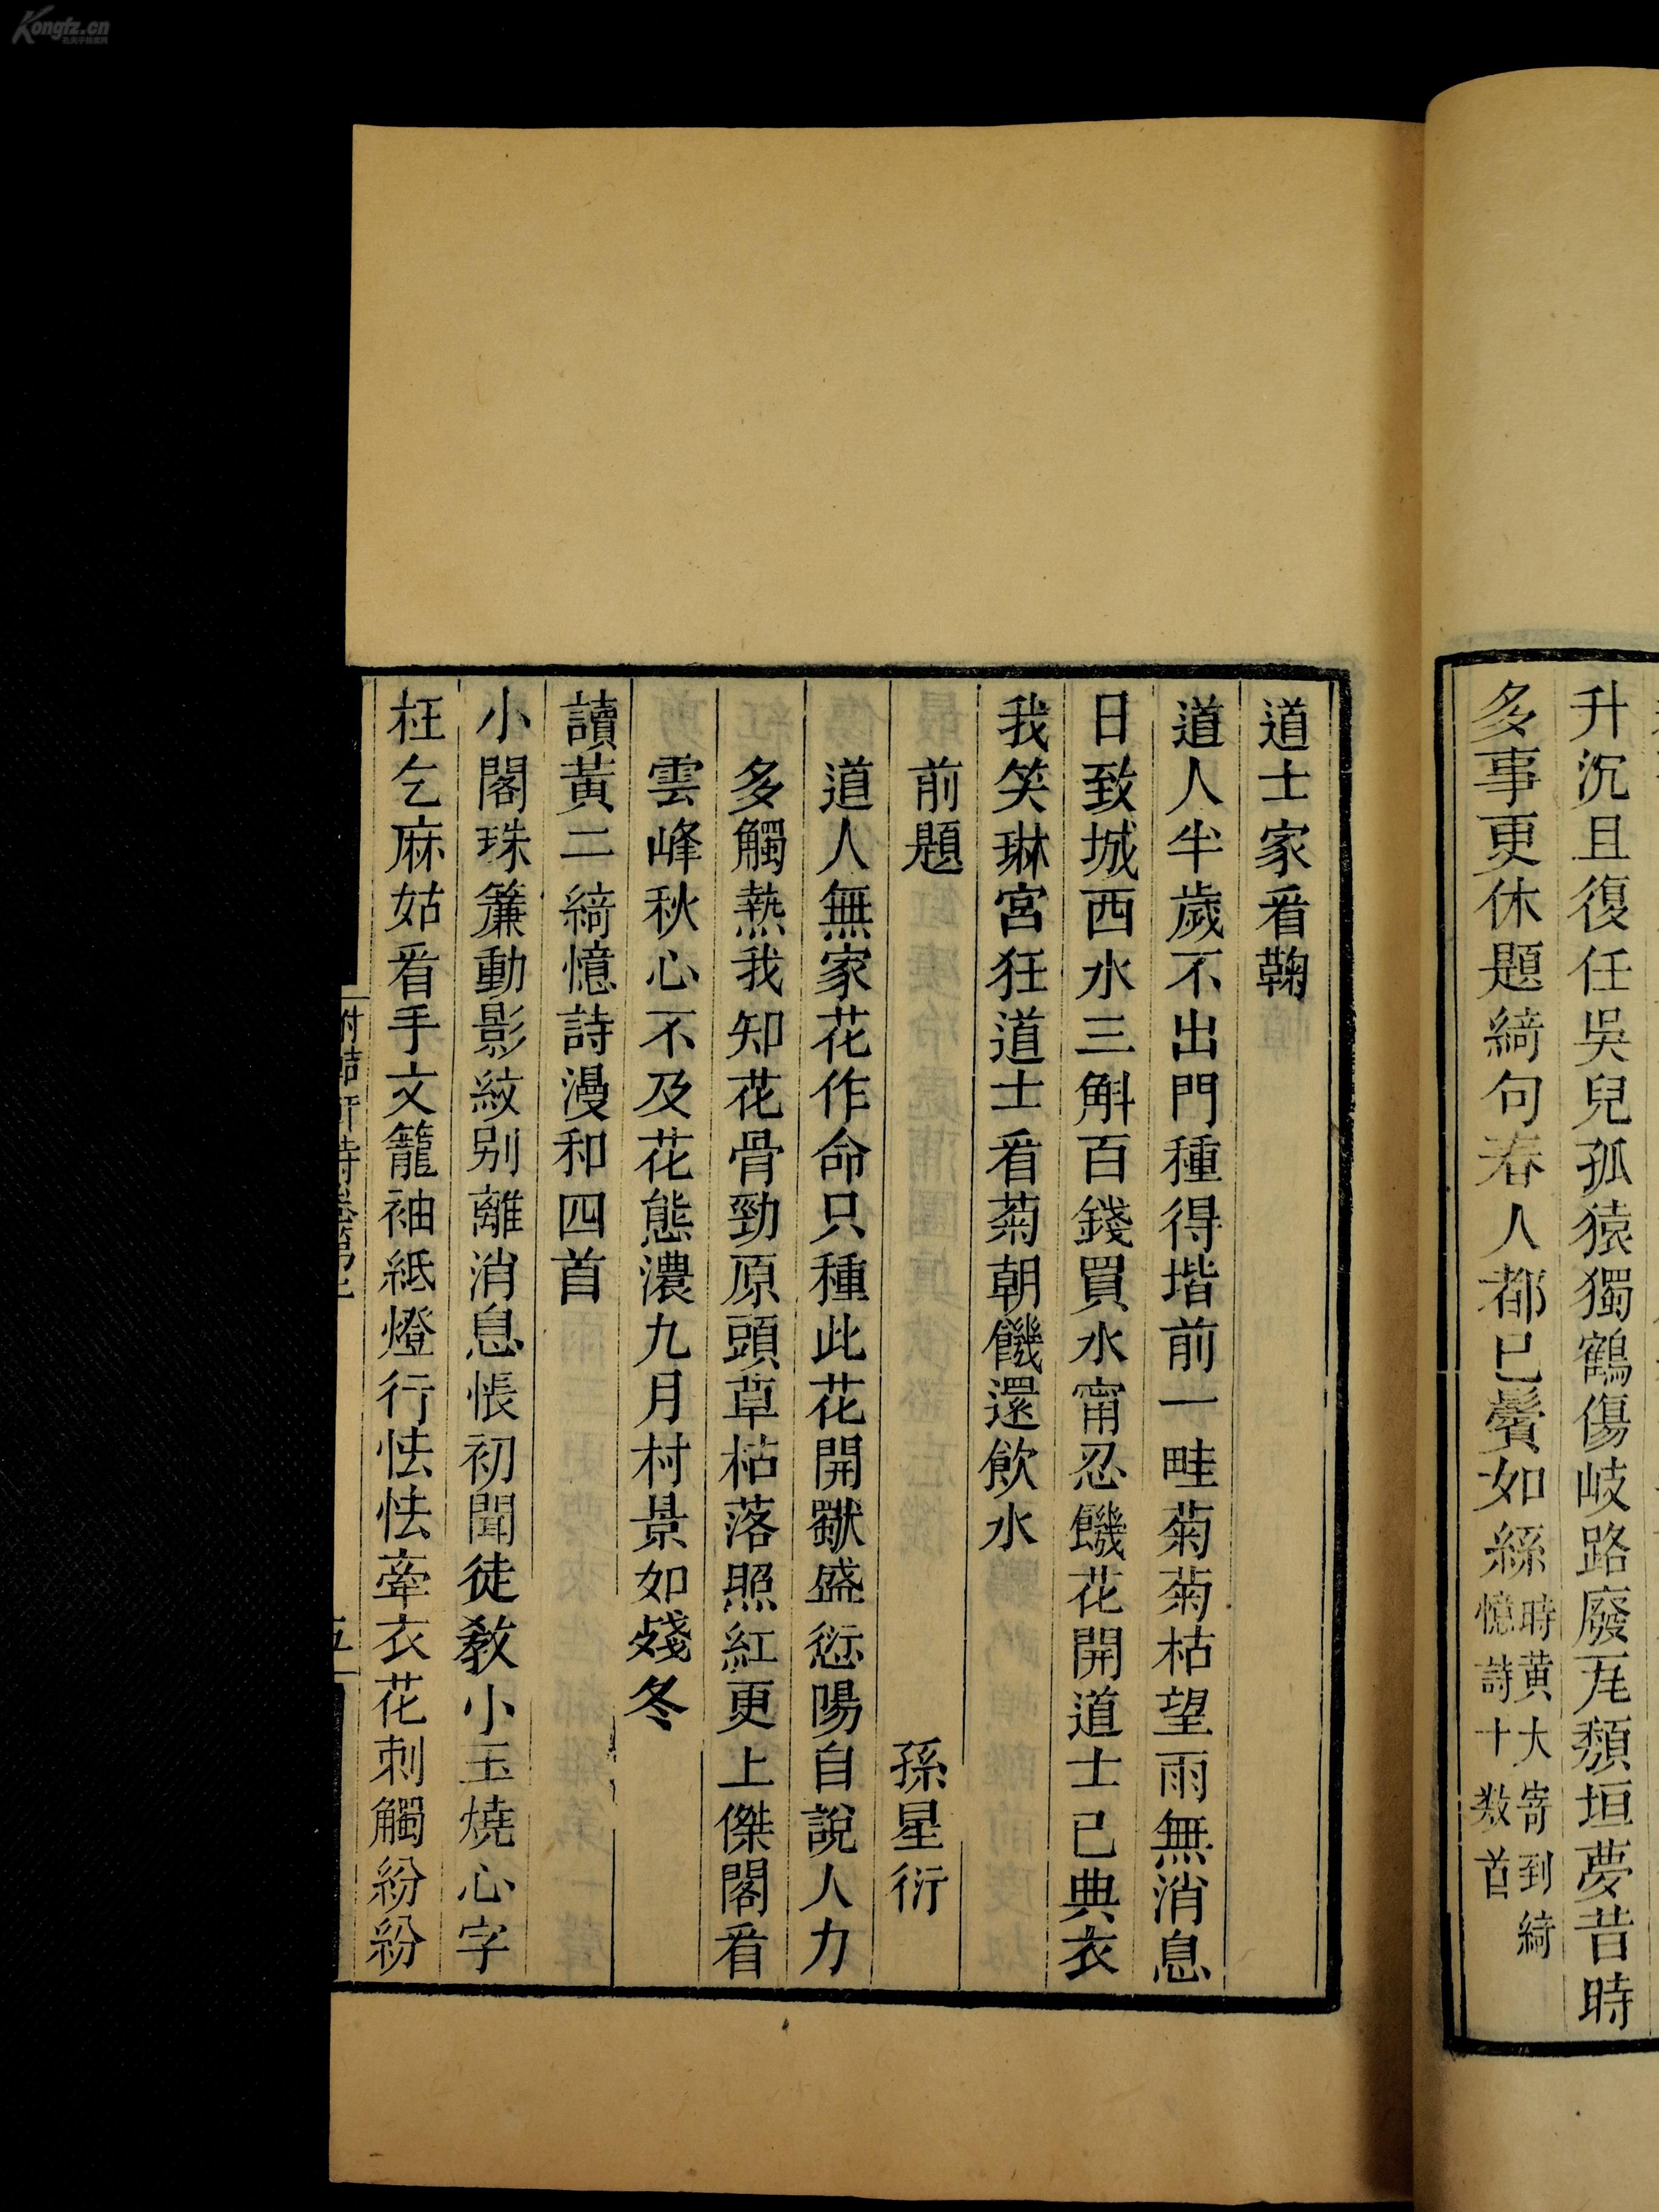 Kongfz.cn
升沉且復任吳兒孤猿獨鶴傷岐路廢瓦頹垣夢昔時
多事更休題綺句春人都已鬢如絲時黃大寄到綺憶詩十數首
道士家看鞠
道人半歲不出門種得堦前一畦菊菊枯望雨無消息
日致城西水三斛百錢買水甯忍饑花開道士已典衣
我笑琳宮狂道士看菊朝饑還飲水
前題 孫星衍
道人無家花作命只種此花開獸盛愆陽自說人力
多觸熱我知花骨勁原頭草枯落照紅更上傑閣看
雲峰秋心不及花態濃九月村景如殘冬
讀黃二綺憶詩漫和四首
小閣珠簾動影紋別離消息悵初聞徒教小玉燒心字
枉乞麻姑看手文籠袖紙燈行怯怯牽衣花刺觸紛紛